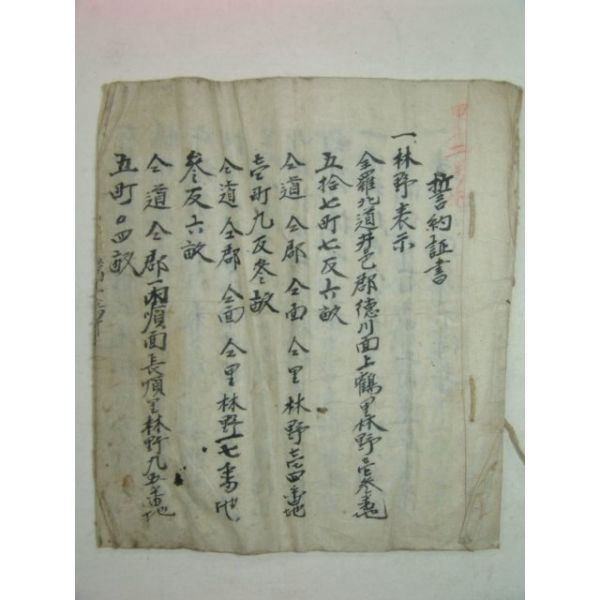 誓約証書
一林野表示
全羅北道井邑郡德川面上鶴里林野壱参番地
五拾七町七反六畝
仝道 仝郡 仝面 仝里 林野壱四番地
壱町九反参畝
仝道 仝郡 仝面 仝里林野一七番地
参反六畝
仝道 仝郡 面長順里林野九五番地
五町〇四畝